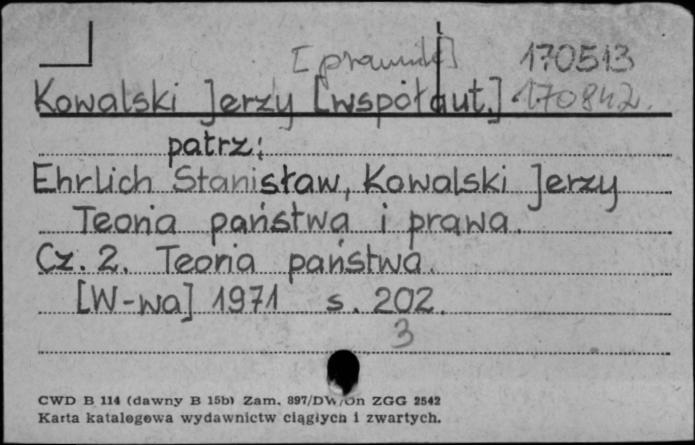 [prawnik] 170513
Kowalski Jerzy [współaut.] 170842.
patrz:
Ehrlich Stanisław, Kowalski Jerzy
Teoria państwa i prawa.
Cz. 2. Teoria państwa.
[W-wa] 1971 s. 202.
3
CWD B 114 (dawny B 15b) Zam. 897/DW/On ZGG 2542
Karta katalogowa wydawnictw ciągłych i zwartych.